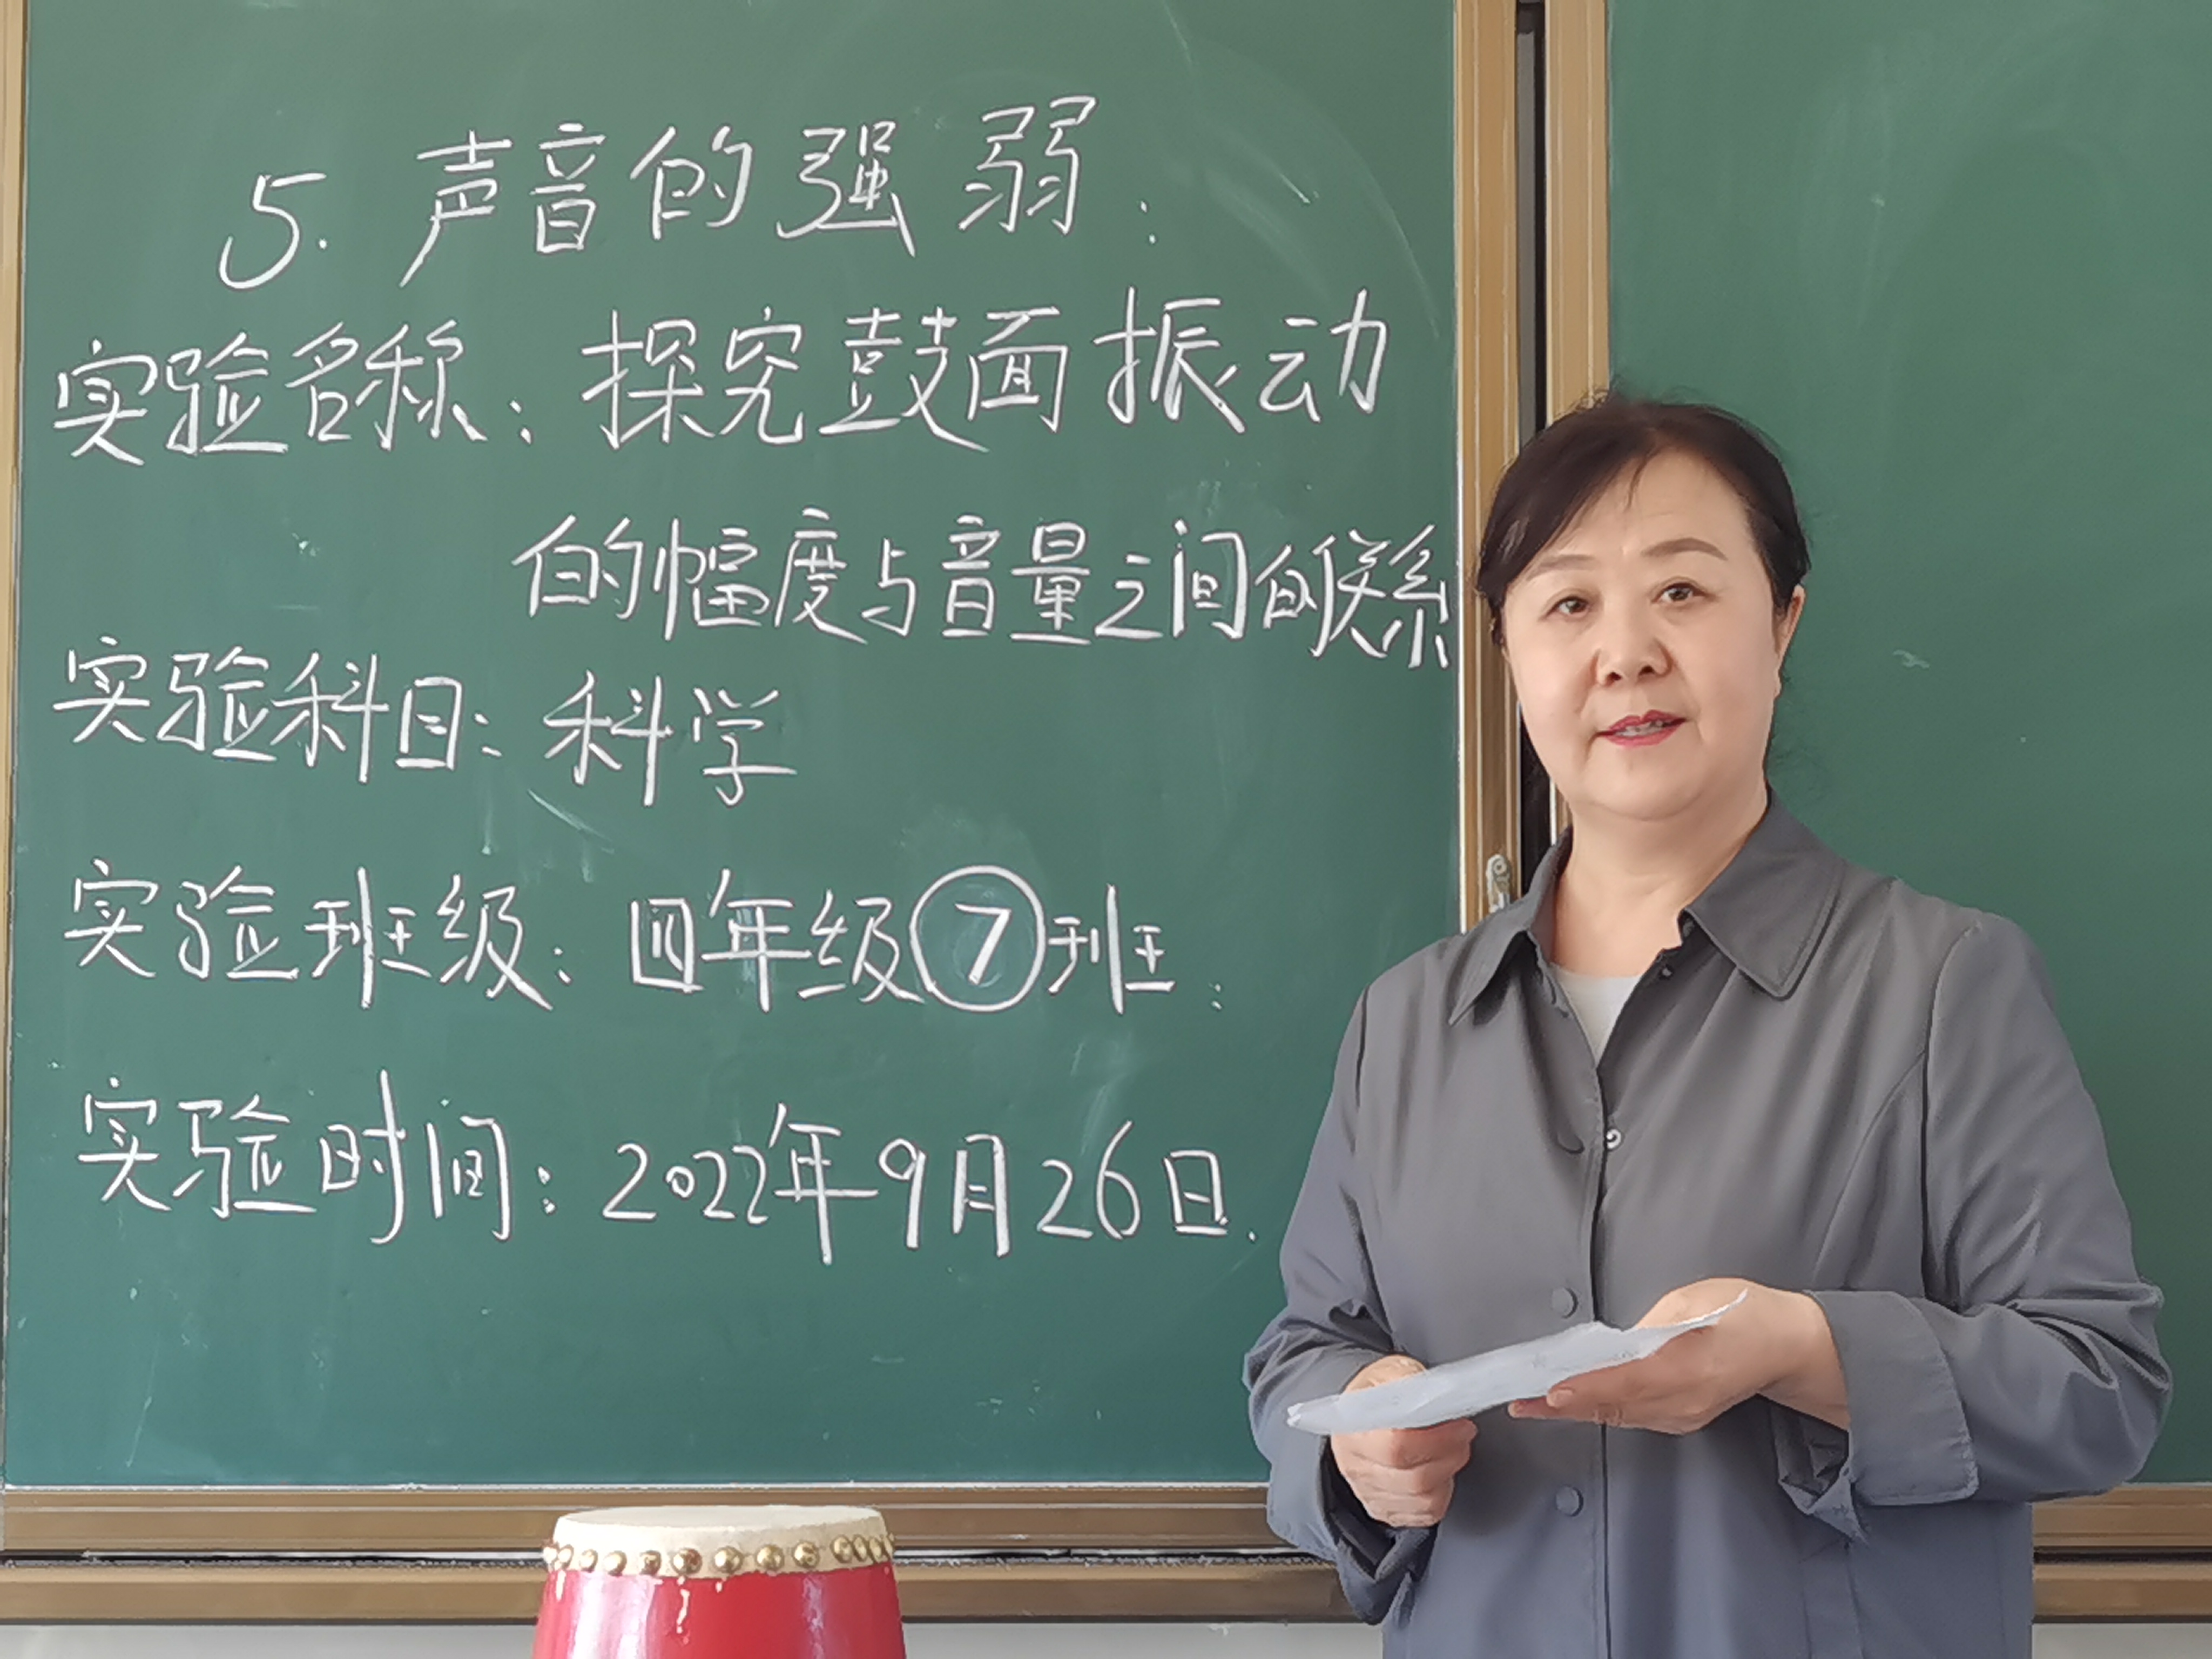 5. 声音的强弱:
实验名称: 探究鼓面振动
的幅度与音量之间的关系
实验科目: 科学
实验班级: 四年级⑦班:
实验时间: 2022年9月26日.